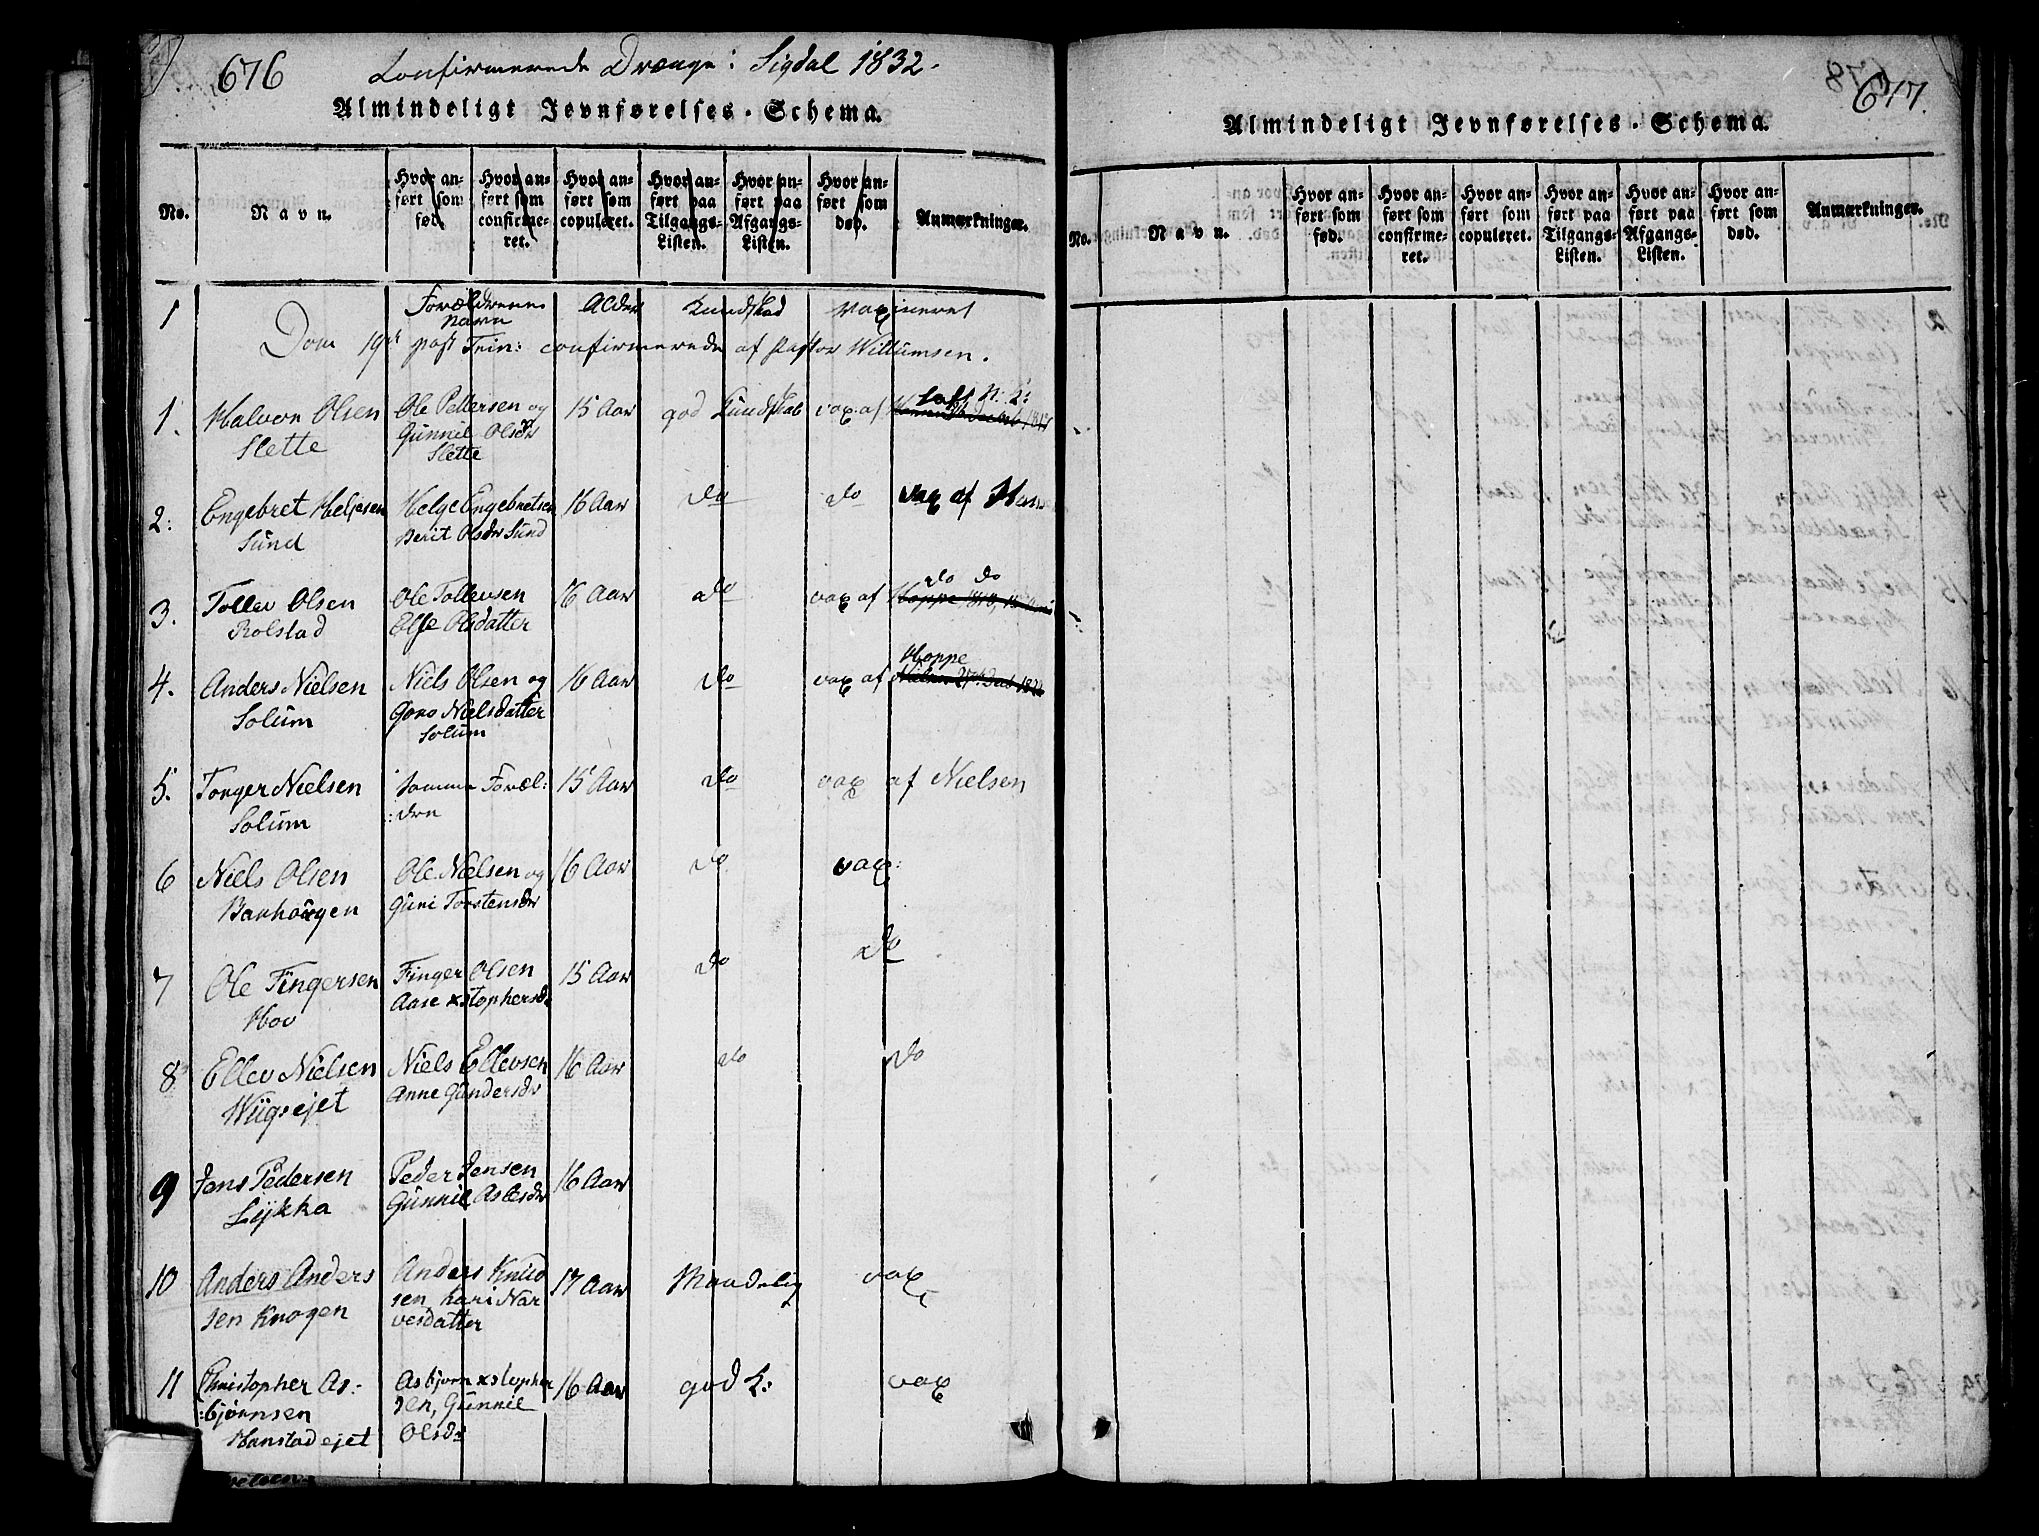 676
Confirmerede Drænge: Sigdal 1832.
Almindeligt Jevnførelses-Schema.
No.
Navn.
Hvor anført som fød.
Hvor anført som confirmeret.
Hvor anført som copuleret.
Hvor anført paa Tilgangs-Listen.
Hvor anført paa Afgangs-Listen.
Hvor anført som død.
Anmærkninger.
1 Forældrenes Navn Alder Kundskab vaxineret
Dom 19de post Trin: confirmerede af Pastor Willumsen.
1. Halvor Olsen Ole Pettersen og 15 Aar god Kundskab vax: af
Slette Gunnil Olsdr
Slette
2: Engebret Helgesen Helge Engebretsen 16 Aar do do vax af
Sund Berit Olsdr Sund
do do
3. Tollev Olsen Ole Tollevsen 16 Aar do vax af
Rolstad Else Olsdatter
Hoppe
4. Anders Nielsen Niels Olsen og 16 Aar do vax af
Solum Goro Nielsdatter
Solum
5. Torger Nielsen Samme Foræl: 15 Aar do vax af Nielsen
Solum :dre
6 Niels Olsen Ole Nielsen og 16 Aar do vax:
Guri Torstensdr
7 Ole Fingersen Finger Olsen 15 Aar do do
Hov Aase xstophersdr
8 Ellev Nielsen Niels Ellevsen 16 Aar do do
Wiigsejet Anne Gundersdr
9 Jens Pedersen Peder Jensen 16 Aar
Lykka Gunnil Aslesdr
10 Anders Anders Anders Knud 17 Aar Maadelig vax
sen Knogen sen Kari Nar
vesdatter
11 Christopher As: Asbjørn xstopher 16 Aar god K: vax
:bjørnsen sen, Gunnil
Hanstadejet Olsdr
677.
Almindeligt Jevnførelses-Schema.
No.
Navn.
Hvor anført som fød.
Hvor anført som confirmeret.
Hvor anført som copuleret.
Hvor anført paa Tilgangs-Listen.
Hvor anført paa Afgangs-Listen.
Hvor anført som død.
Anmærkninger.